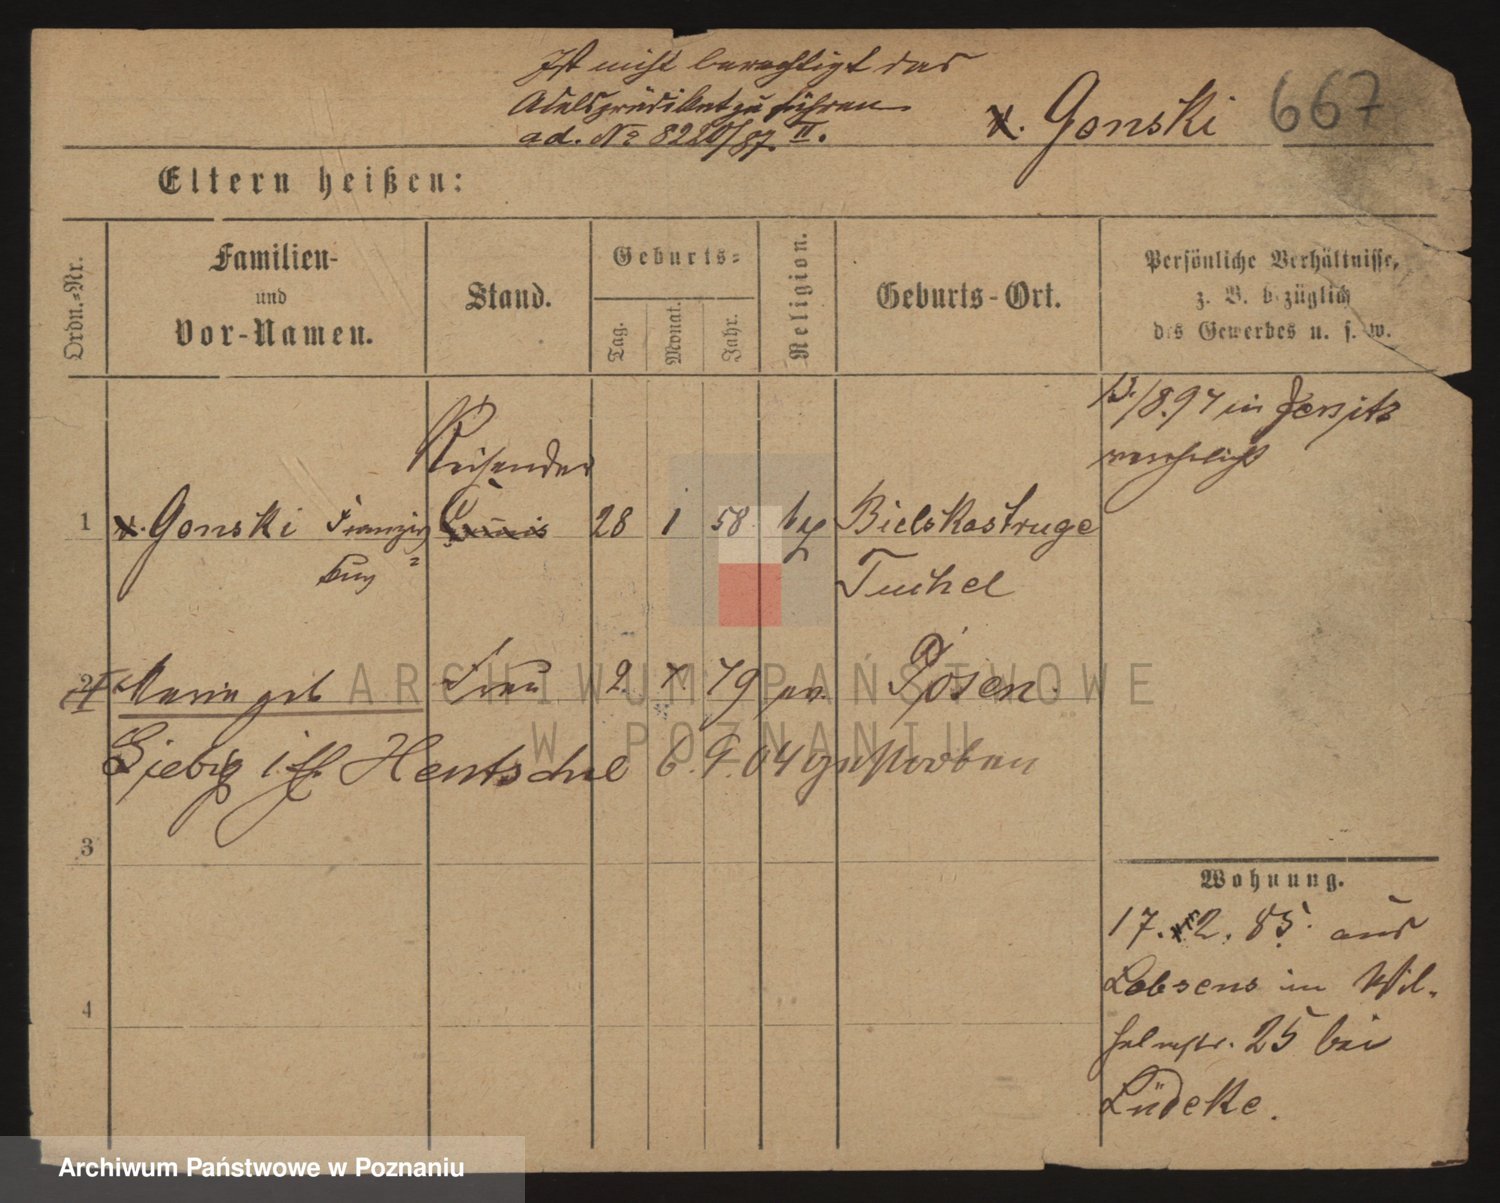 Ist nicht berechtigt das
Adelsprädikat zu führen
ad. No 8220/87. II.
v. Gonski 667
Eltern heißen:
Ordn.-Nr.
Familien-
und
Vor-Namen.
Stand.
Geburts-
Tag.
Monat.
Jahr.
Religion.
Geburts-Ort.
Persönliche Verhältnisse,
z. B. bezüglich
des Gewerbes u. s. w.
/8.97 in Jersitz
verehelicht
Reisender
1 v. Gonski Franzis= 28 1 58 Bielskastruge
Tuchel
2 Marie geb Frau 2. 7. 79 ev. Posen.
Liebig Hentschel 6. 9. 04 gestorben
3
4
Wohnung.
17. 2. 85. aus
Lobsens in Wil-
helmstr. 25 bei
Lüdeke.
ARCHIWUM PAŃSTWOWE
W POZNANIU
Archiwum Państwowe w Poznaniu